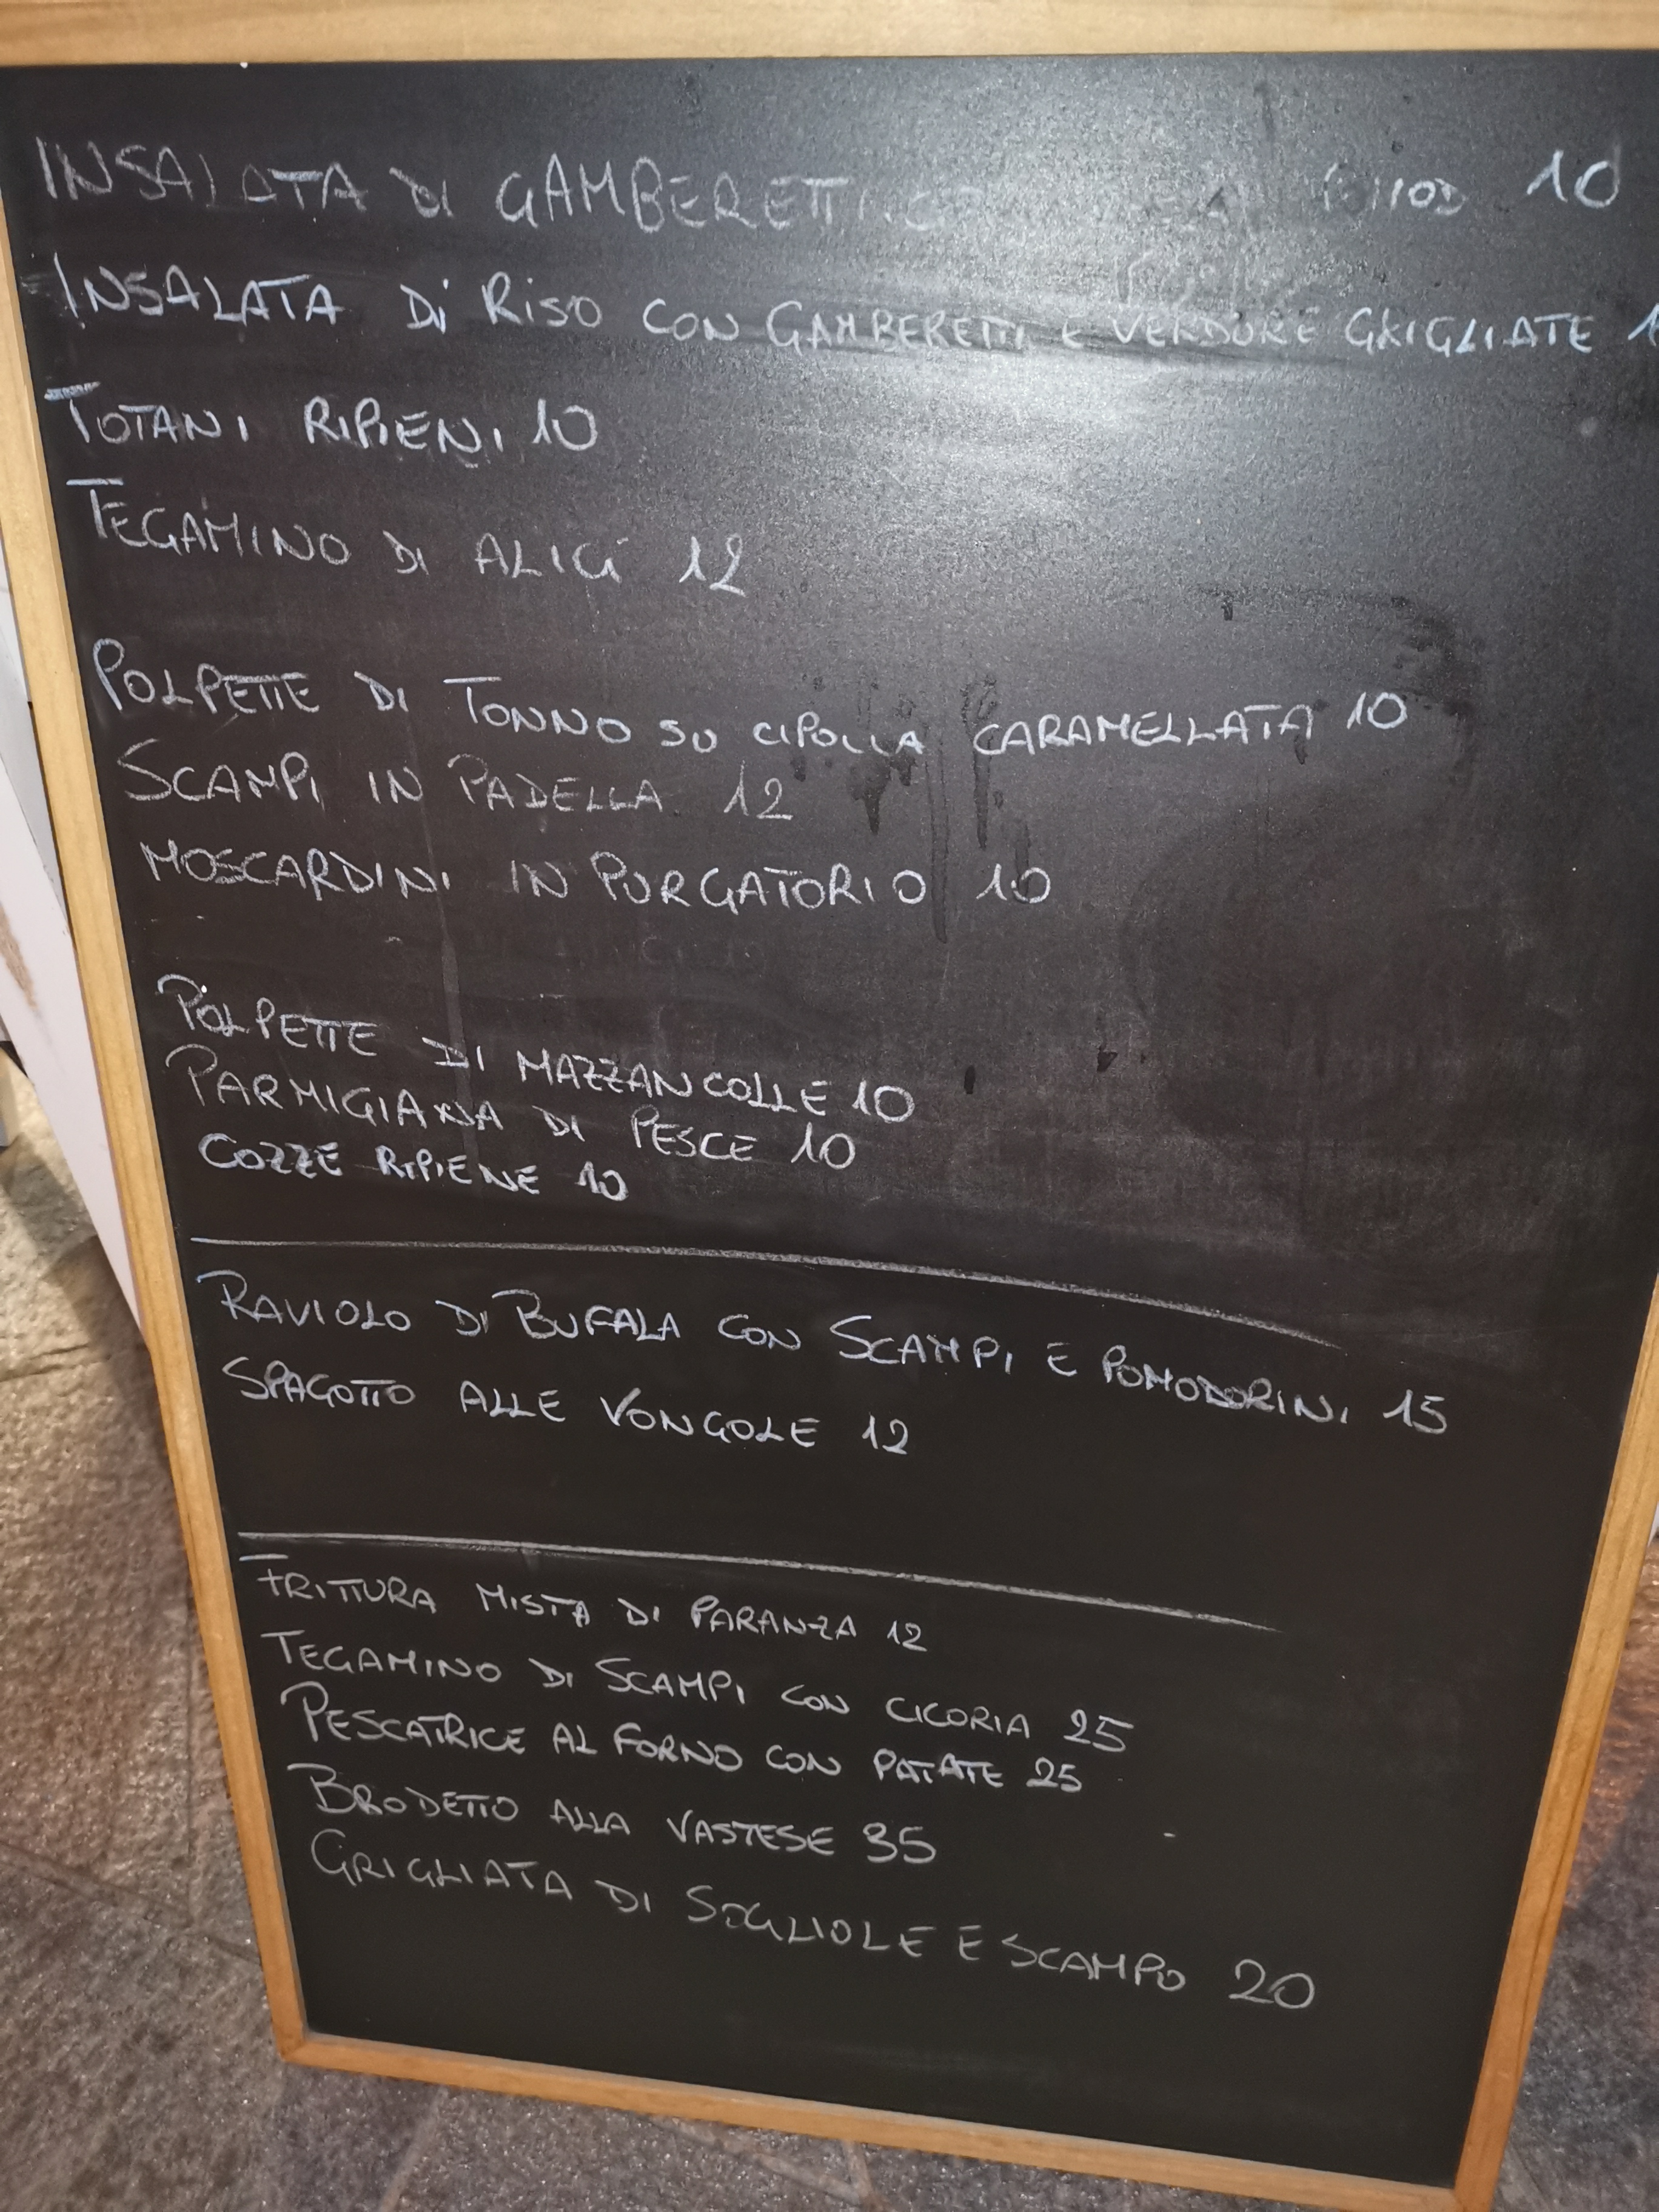 INSALATA DI GAMBERETTI 10
INSALATA Di RISO CON GAMBERETTI E VERDURE GRIGLIATE
TOTANI RIPIENI 10
TEGAMINO DI ALICI 12
POLPETTE DI TONNO SU CIPOLLA CARAMELLATA 10
SCAMPI IN PADELLA 12
MOSCARDINI IN PURGATORIO 10
POLPETTE DI MAZZANCOLLE 10
PARMIGIANA DI PESCE 10
COZZE RIPIENE 10
RAVIOLO DI BUFALA CON SCAMPI E POMODORINI 15
SPAGOTTO ALLE VONGOLE 12
FRITTURA MISTA DI PARANZA 12
TEGAMINO DI SCAMPI CON CICORIA 25
PESCATRICE AL FORNO CON PATATE 25
BRODETTO ALLA VASTESE 35
GRIGLIATA DI SOGLIOLE E SCAMPO 20